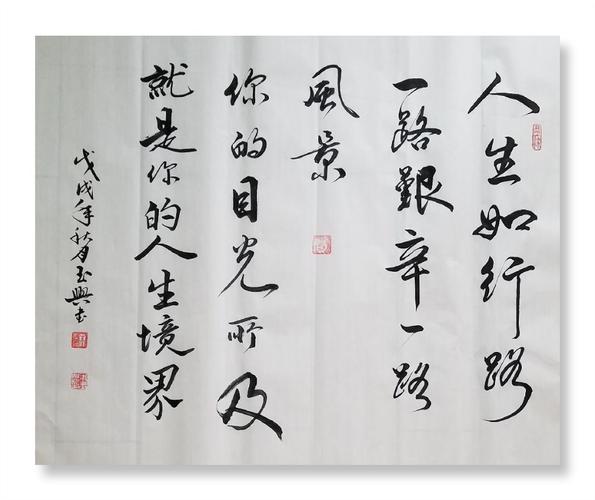 人生如行路
一路艱辛一路
風景
你的目光所及
就是你的人生境界
戊戌年秋月玉興书